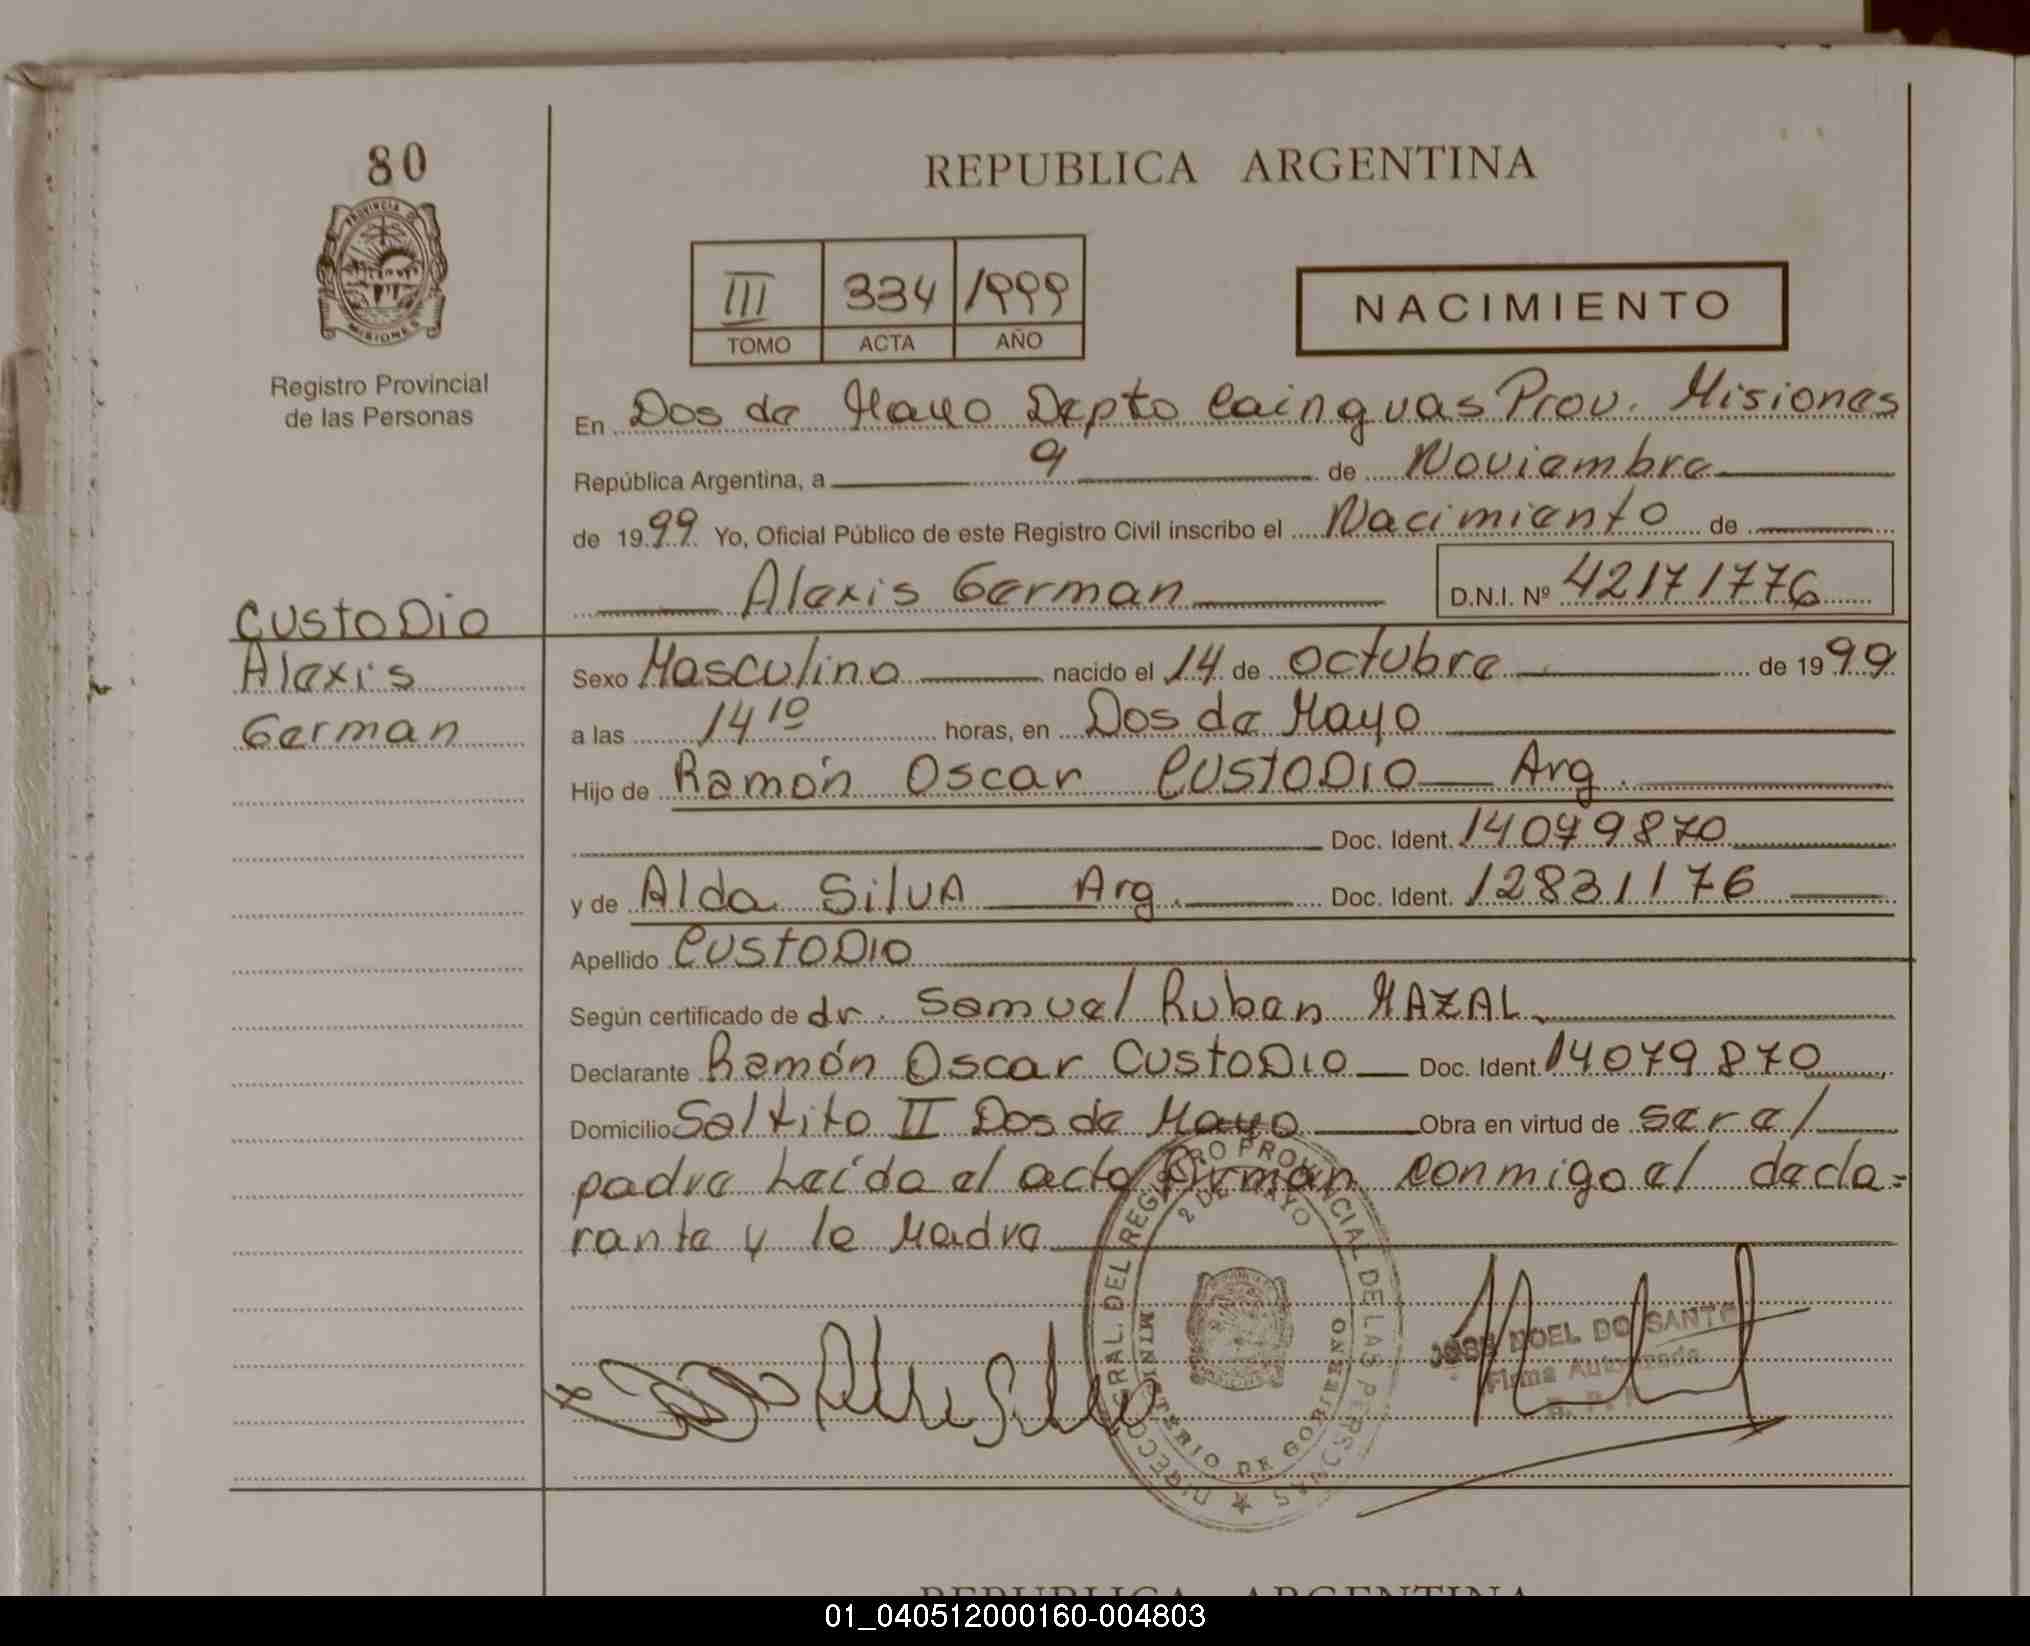 80
REPUBLICA ARGENTINA
PROVINCIA DE
MISIONES
Registro Provincial
de las Personas
III 334 1999
TOMO ACTA AÑO
NACIMIENTO
En Dos de Mayo Depto Cainguas Prov. Misiones
República Argentina, a 9 de Noviembre
de 1999 Yo, Oficial Público de este Registro Civil inscribo el Nacimiento de
Alexis German D.N.I. Nº 42171776
CUSTODIO
Alexis
German
Sexo Masculino nacido el 14 de octubre de 1999
a las 14 10 horas, en Dos de Mayo
Hijo de Ramón Oscar CUSTODIO Arg.
Doc. Ident. 14079870
y de Alda SilVA Arg. Doc. Ident. 12831176
Apellido CUSTODIO
Según certificado de dr. Samuel Ruben MAZAL
Declarante Ramón Oscar CustoDIO Doc. Ident. 14079870
Domicilio Saltito II Dos de Mayo Obra en virtud de ser el
padre Leída el acta firman conmigo el decla=
rante y la Madre
DIRECC. GRAL. DEL REGISTRO PROVINCIAL DE LAS PERSONAS
2 DE MAYO
MINISTERIO DE GOBIERNO
JOSE NOEL DO SANTO
Firma Autorizada
REPUBLICA ARGENTINA
01_040512000160-004803